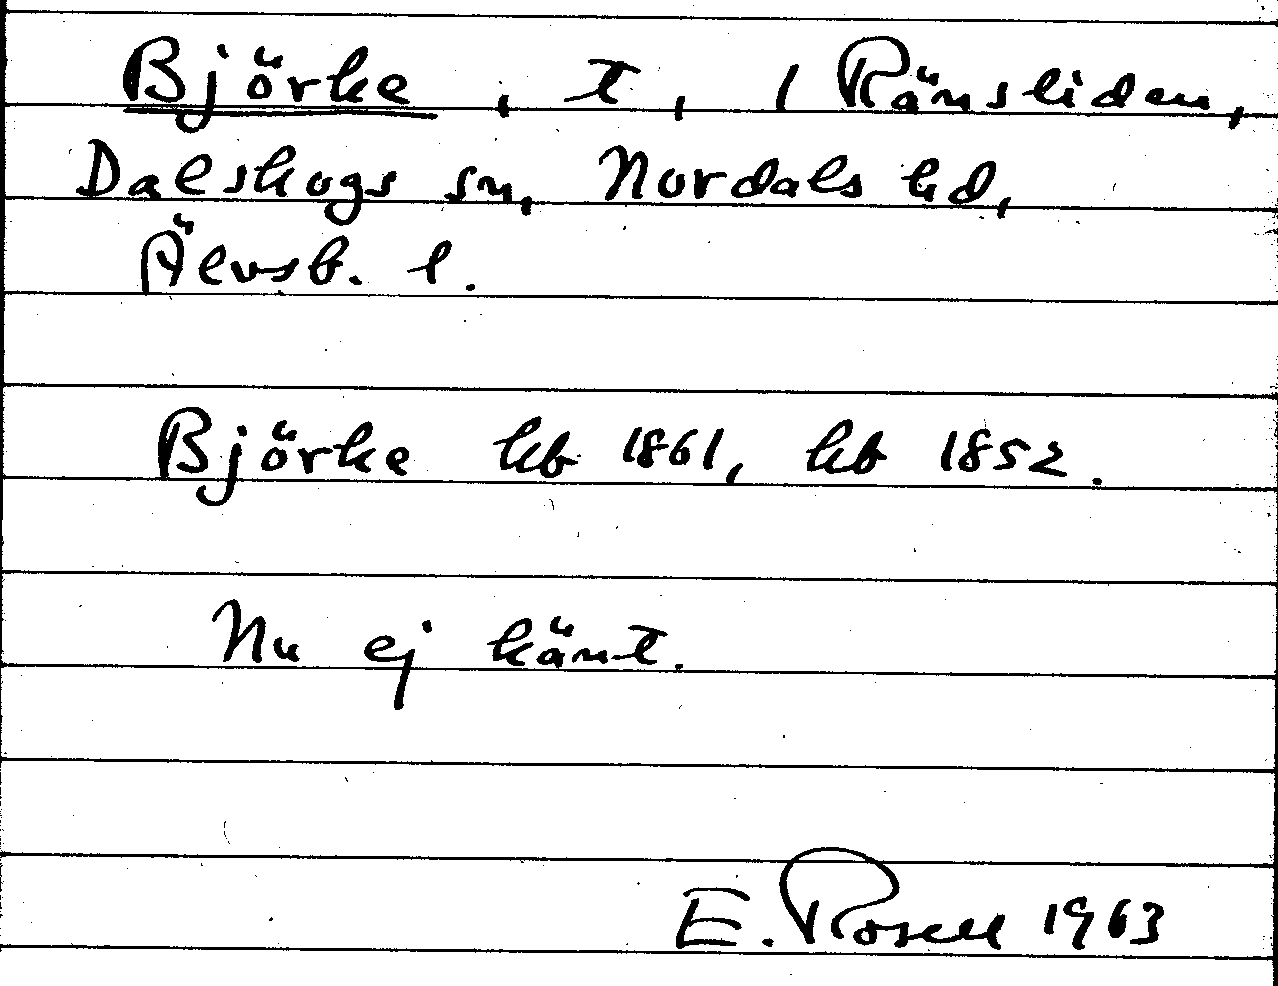 Björke, t, 1 Ränsliden,
Dalskogs sn, Nordals hd,
Älvsb. l.
Björke kb 1861, kb 1852.
Nu ej känt.
E. Rosell 1963